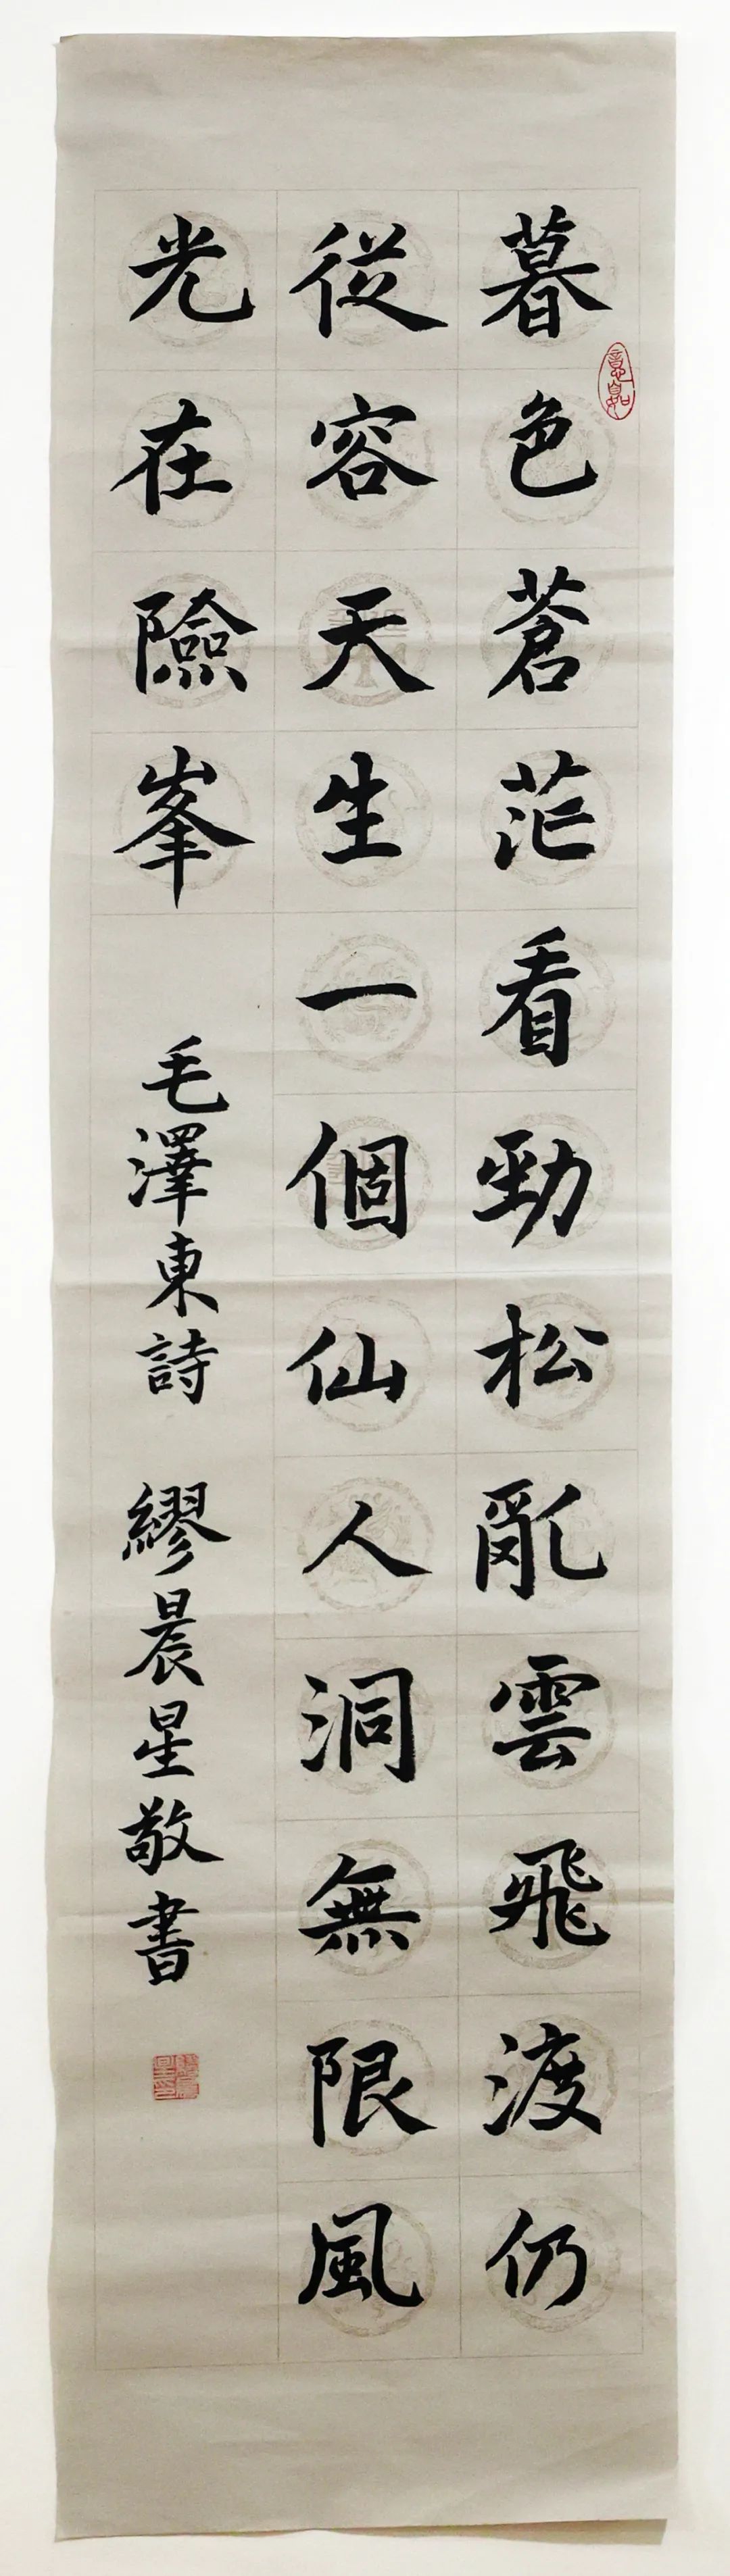 暮色蒼茫看勁松亂雲飛渡仍
從容天生一個仙人洞無限風
光在險峯
毛澤東詩 繆晨星敬書
如意